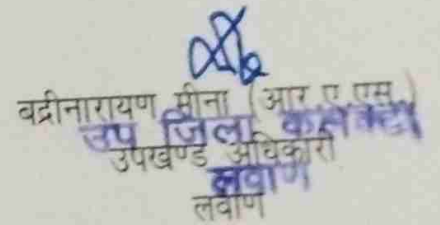 बद्रीनारायण मीना (आर ए एस)
उप जिला कलक्टर
उपखण्ड अधिकारी
लवाण
लवाण